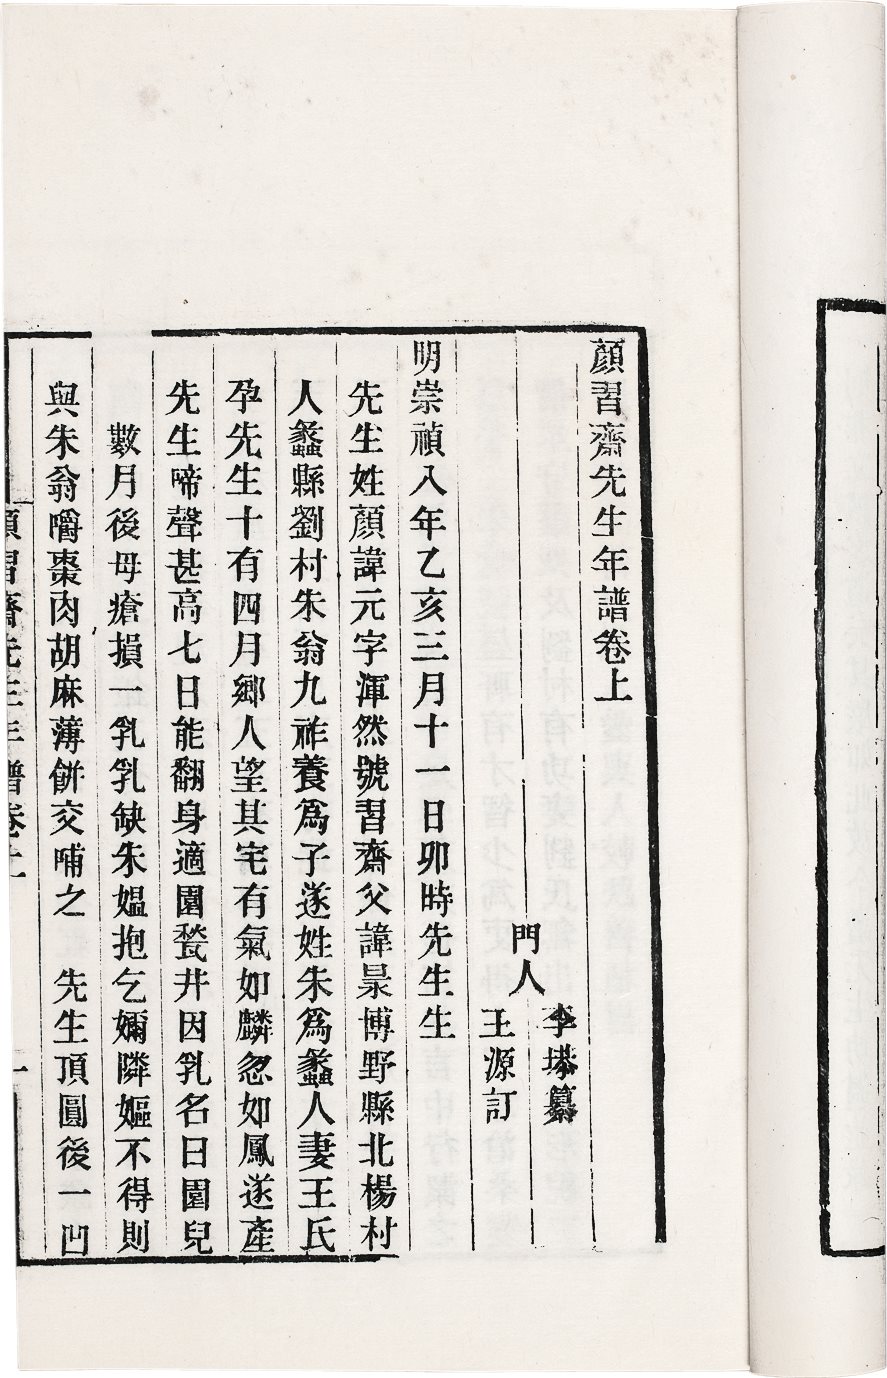 顏習齋先生年譜卷上
門人
李塨纂
王源訂
明崇禎八年乙亥三月十一日卯時先生生
先生姓顏諱元字渾然號習齋父諱㫤博野縣北楊村
人蠡縣劉村朱翁九祚養爲子遂姓朱爲蠡人妻王氏
孕先生十有四月鄉人望其宅有氣如麟忽如鳳遂產
先生啼聲甚高七日能翻身適園甃井因乳名曰園兒
數月後母瘡損一乳乳缺朱媼抱乞嬭隣嫗不得則
與朱翁嚼棗肉胡麻薄餅交哺之　先生頂圓後一凹
顏習齋先生年譜卷上
一